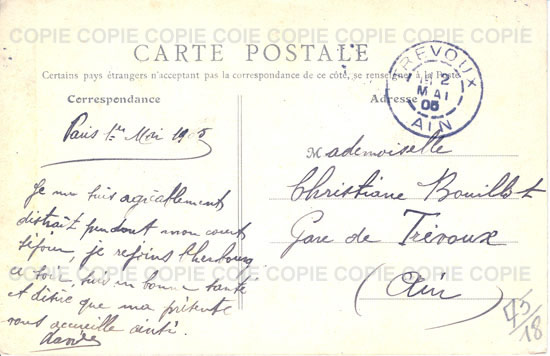 COPIE COPIE COPIE COPIE COPIE COPIE COPIE
CARTE POSTALE
Certains pays étrangers n'acceptant pas la correspondance de ce côté, se renseigner à la Poste
Correspondance
Adresse
TREVOUX
2
MAI
05
AIN
Paris 1er Mai 1905
Je me suis agréablement
distrait pendant mon court
séjour, je rejoins Cherbourg
ce soir, suis en bonne santé
et désire que ma présente
vous accueille ainsi.
Mademoiselle
Christiane Bouillot
Gare de Trévoux
(Ain)
45/18